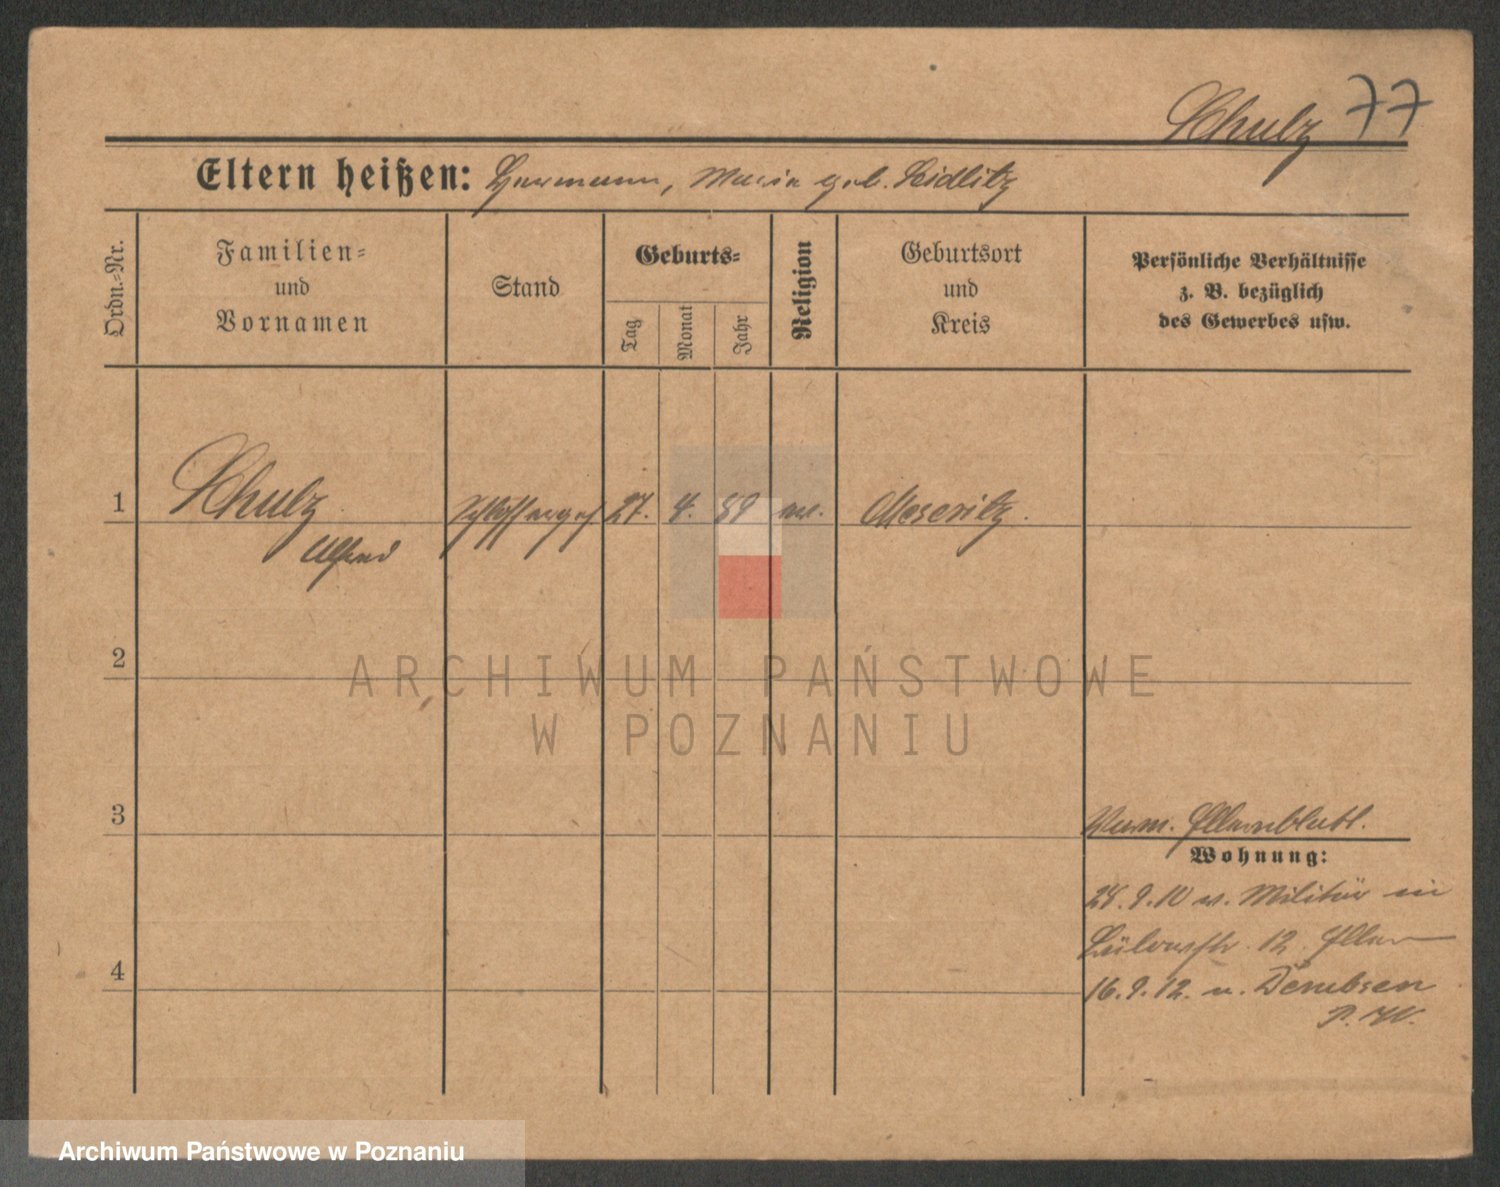 Schulz 77
Eltern heißen: Hermann, Maria geb. Seidlitz
Ordn.-Nr.
Familien-
und
Vornamen
Stand
Geburts-
Tag
Monat
Jahr
Religion
Geburtsort
und
Kreis
Persönliche Verhältnisse
z. B. bezüglich
des Gewerbes usw.
1 Schulz Schlosserges 27. 4. 89 ev. Meseritz.
Alfred
2
ARCHIWUM PAŃSTWOWE
W POZNANIU
3
Verm. Elternblatt.
Wohnung:
28.9.10 v. Militär in
12. Eltern
4
16.9.12. n. Dembsen
P. W.
Archiwum Państwowe w Poznaniu